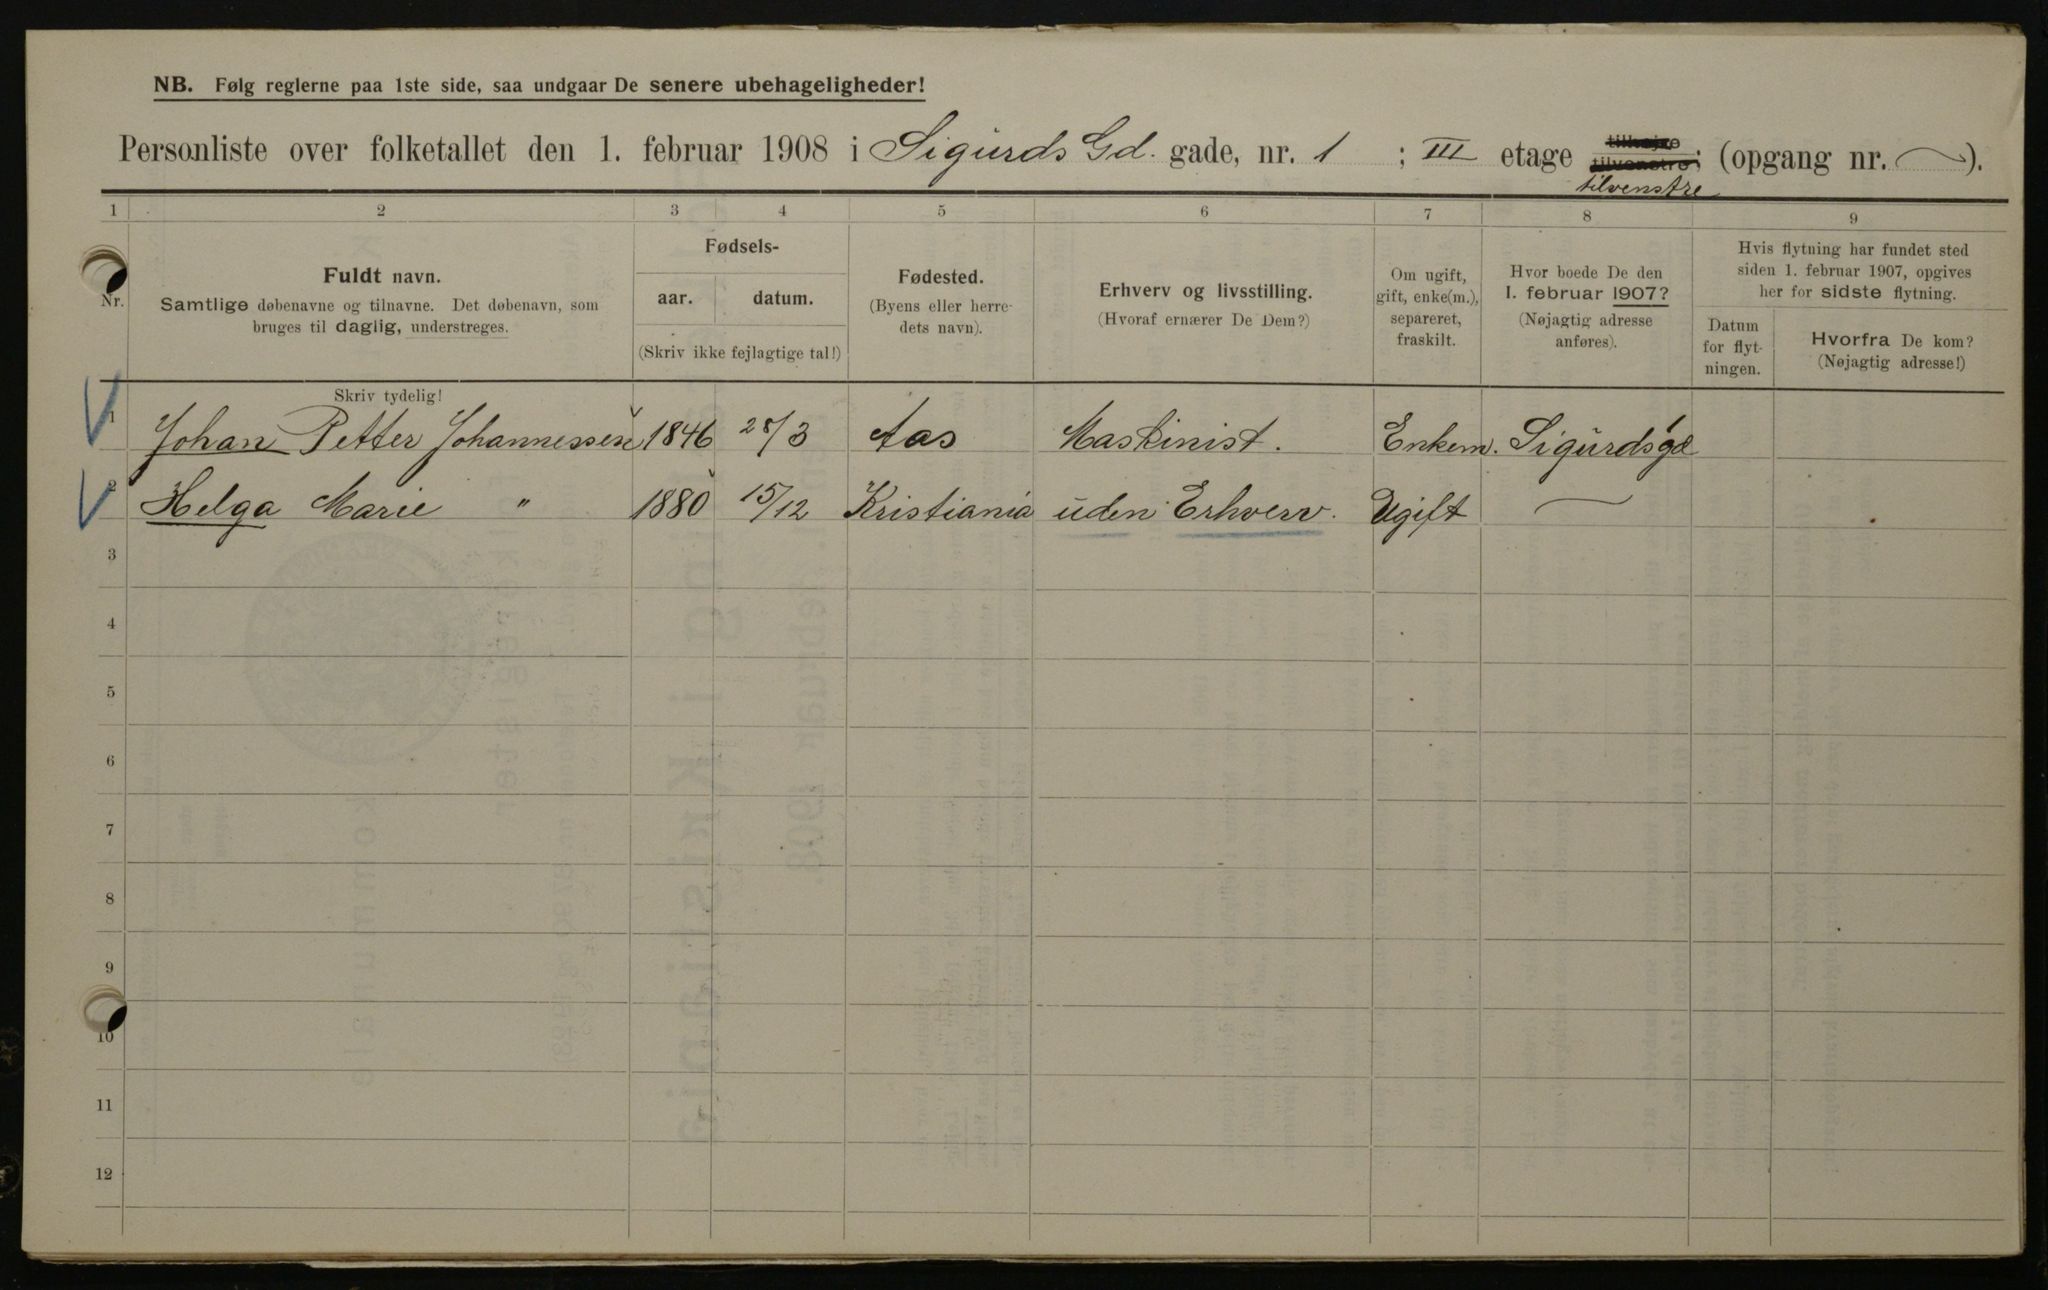 NB. Følg reglerne paa 1ste side, saa undgaar De senere ubehageligheder!
Personliste over folketallet den 1. februar 1908 i Sigurds Gd. gade, nr. 1 ; III etage tilhøjre tilvenstre; (opgang nr. ).
tilvenstre
1 2 3 4 5 6 7 8 9
Nr.
Fuldt navn.
Samtlige døbenavne og tilnavne. Det døbenavn, som
bruges til daglig, understreges.
Fødsels-
aar. datum.
(Skriv ikke fejlagtige tal!)
Fødested.
(Byens eller herre-
dets navn).
Erhverv og livsstilling.
(Hvoraf ernærer De Dem?)
Om ugift,
gift, enke(m.),
separeret,
fraskilt.
Hvor boede De den
1. februar 1907?
(Nøjagtig adresse
anføres).
Hvis flytning har fundet sted
siden 1. februar 1907, opgives
her for sidste flytning.
Datum
for flyt-
ningen.
Hvorfra De kom?
(Nøjagtig adresse!)
Skriv tydelig!
1 Johan Petter Johannessen 1846 28/3 Aas Maskinist. Enkem. Sigurdsgd
2 Helga Marie " 1880 15/12 Kristiania uden Erhverv. Ugift —
3
4
5
6
7
8
9
10
11
12